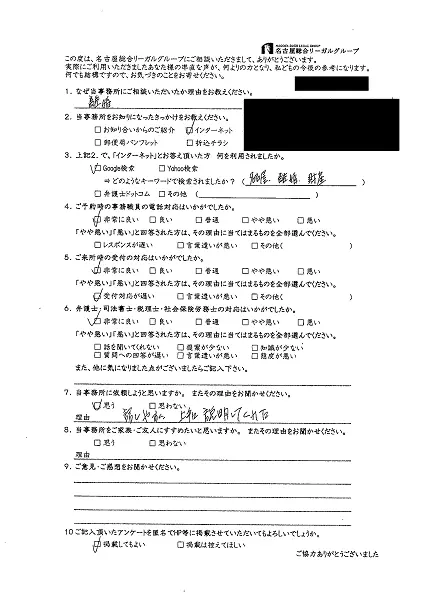 NAGOYA SOGO LEGAL GROUP
名古屋総合リーガルグループ
この度は、名古屋総合リーガルグループにご相談いただきまして、ありがとうございます。
実際にご利用いただきましたあなた様の率直な声が、何よりの力となり、私どもの今後の参考になります。
何でも結構ですので、お気づきのことをお寄せください。
1. なぜ当事務所にご相談いただいたか理由をお教えください。
離婚
2. 当事務所をお知りになったきっかけをお教えください。
□お知り合いからのご紹介 ☑インターネット
□郵便局パンフレット □折込チラシ
3. 上記2. で、「インターネット」とお答え頂いた方 何を利用されましたか。
☑Google検索 □Yahoo検索
⇒どのようなキーワードで検索されましたか? ( 離婚 財産 )
□弁護士ドットコム □その他 ( )
4. ご予約時の事務職員の電話対応はいかがでしたか。
☑非常に良い □良い □普通 □やや悪い □悪い
「やや悪い」「悪い」と回答された方は、その理由に当てはまるものを全部選んでください。
□レスポンスが遅い □言葉遣いが悪い □その他( )
5. ご来所時の受付の対応はいかがでしたか。
☑非常に良い □良い □普通 □やや悪い □悪い
「やや悪い」「悪い」と回答された方は、その理由に当てはまるものを全部選んでください。
☑受付対応が遅い □言葉遣いが悪い □その他( )
6. 弁護士・司法書士・税理士・社会保険労務士の対応はいかがでしたか。
☑非常に良い □良い □普通 □やや悪い □悪い
「やや悪い」「悪い」と回答された方は、その理由に当てはまるものを全部選んでください。
□話を聞いてくれない □提案が少ない □知識が少ない
□質問への回答が遅い □言葉遣いが悪い □態度が悪い
また、他に気になりました点がございましたらご記入下さい。
7. 当事務所に依頼しようと思いますか。 またその理由をお聞かせください。
☑思う □思わない
理由 話しやすい 説明してくれた
8. 当事務所をご家族・ご友人にすすめたいと思いますか。 またその理由をお聞かせください。
□思う □思わない
理由
9. ご意見・ご感想をお聞かせください。
10 ご記入頂いたアンケートを匿名でHP等に掲載させていただいてもよろしいでしょうか。
☑掲載してもよい □掲載は控えてほしい
ご協力ありがとうございました